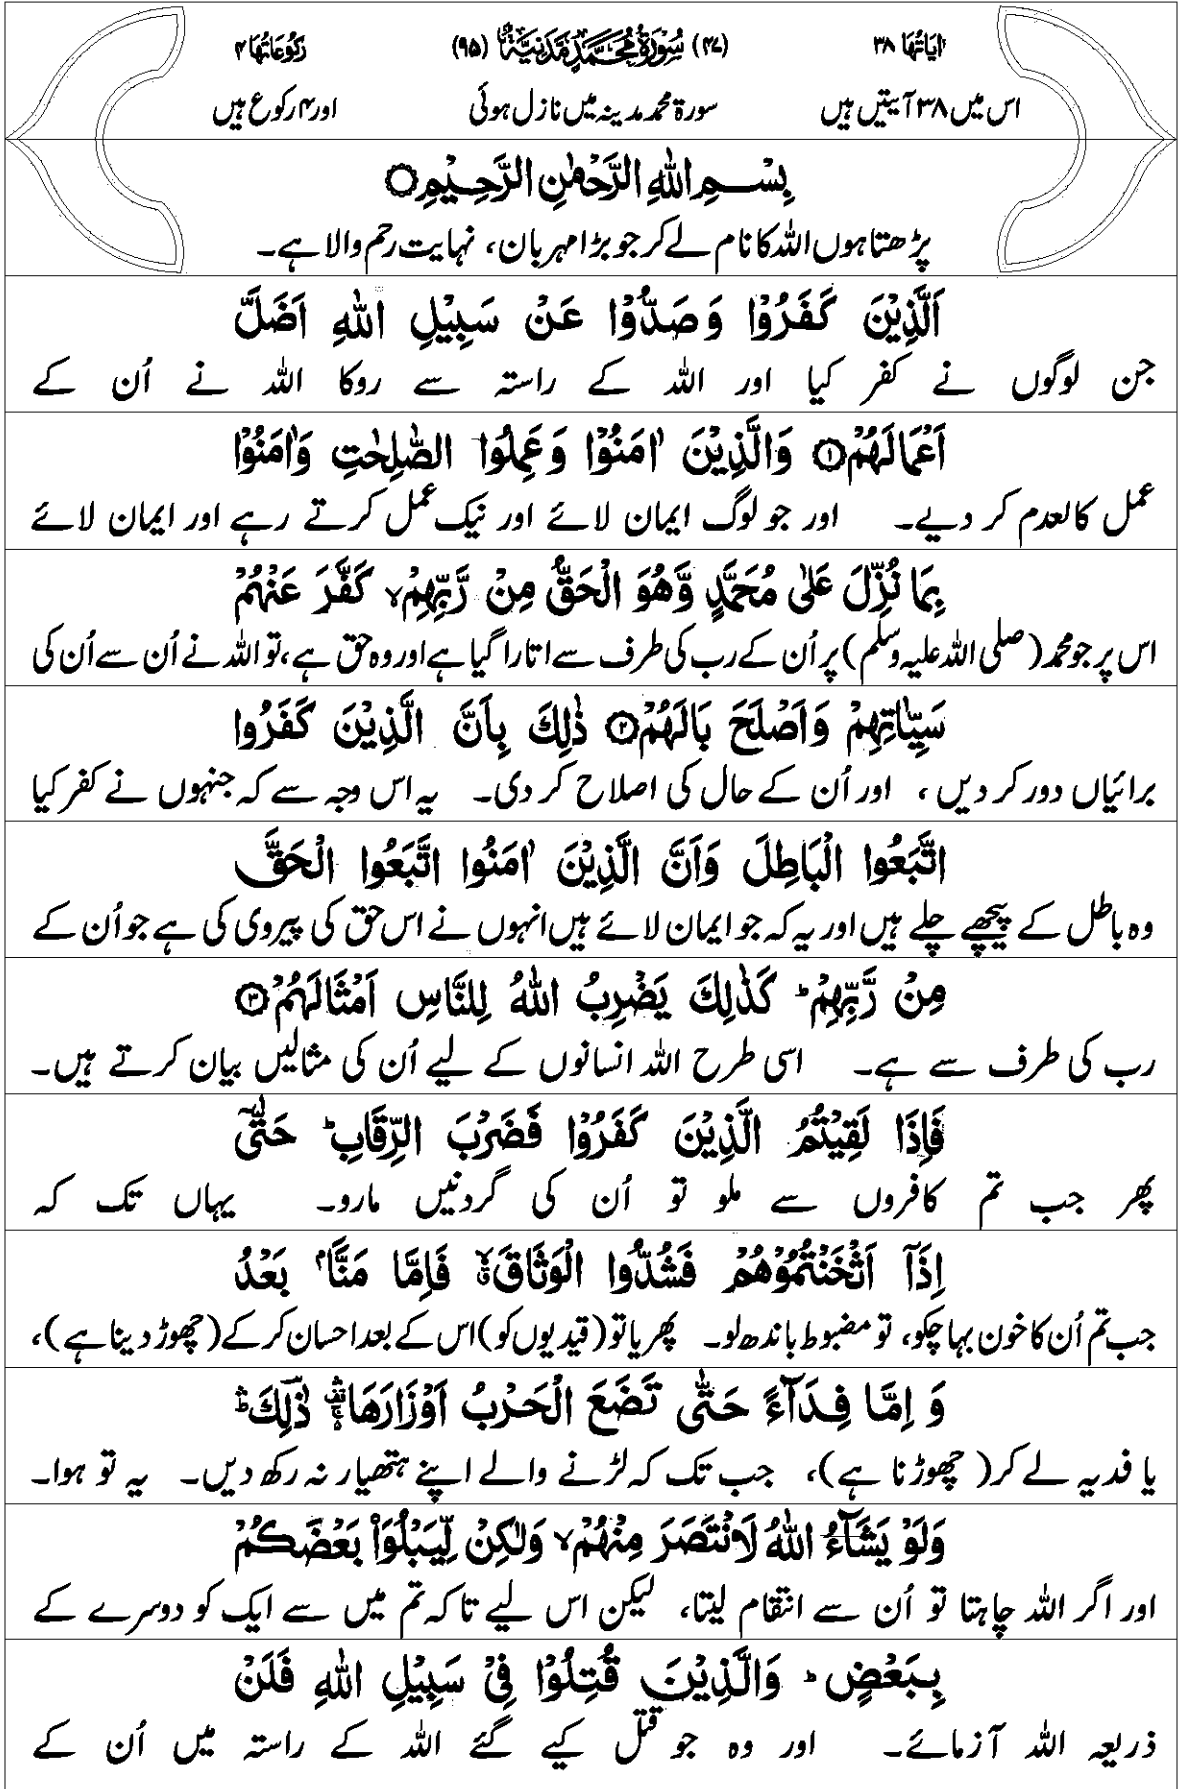 اٰيَاتُهَا ٣٨ (٤٧) سُوْرَةُ مُحَمَّدٍ مَّدَنِيَّةٌ (٩٥) رُكُوْعَاتُهَا ٤
اس میں ۳۸ آیتیں ہیں سورۃ محمد مدینہ میں نازل ہوئی اور ۴ رکوع ہیں
بِسْمِ اللهِ الرَّحْمٰنِ الرَّحِيْمِ○
پڑھتا ہوں اللہ کا نام لے کر جو بڑا مہربان، نہایت رحم والا ہے۔
اَلَّذِيْنَ كَفَرُوْا وَصَدُّوْا عَنْ سَبِيْلِ اللهِ اَضَلَّ
جن لوگوں نے کفر کیا اور اللہ کے راستہ سے روکا اللہ نے اُن کے
اَعْمَالَهُمْ۝١ وَالَّذِيْنَ اٰمَنُوْا وَعَمِلُوا الصّٰلِحٰتِ وَاٰمَنُوْا
عمل کالعدم کر دیے۔ اور جو لوگ ایمان لائے اور نیک عمل کرتے رہے اور ایمان لائے
بِمَا نُزِّلَ عَلٰى مُحَمَّدٍ وَّهُوَ الْحَقُّ مِنْ رَّبِّهِمْ ۙ كَفَّرَ عَنْهُمْ
اس پر جو محمد (صلی اللہ علیہ وسلم) پر اُن کے رب کی طرف سے اتارا گیا ہے اور وہ حق ہے، تو اللہ نے اُن سے اُن کی
سَيِّاٰتِهِمْ وَاَصْلَحَ بَالَهُمْ۝٢ ذٰلِكَ بِاَنَّ الَّذِيْنَ كَفَرُوا
برائیاں دور کر دیں ، اور اُن کے حال کی اصلاح کر دی۔ یہ اس وجہ سے کہ جنہوں نے کفر کیا
اتَّبَعُوا الْبَاطِلَ وَاَنَّ الَّذِيْنَ اٰمَنُوا اتَّبَعُوا الْحَقَّ
وہ باطل کے پیچھے چلے ہیں اور یہ کہ جو ایمان لائے ہیں انہوں نے اس حق کی پیروی کی ہے جو اُن کے
مِنْ رَّبِّهِمْ ؕ كَذٰلِكَ يَضْرِبُ اللهُ لِلنَّاسِ اَمْثَالَهُمْ۝٣
رب کی طرف سے ہے۔ اسی طرح اللہ انسانوں کے لیے اُن کی مثالیں بیان کرتے ہیں۔
فَاِذَا لَقِيْتُمُ الَّذِيْنَ كَفَرُوْا فَضَرْبَ الرِّقَابِ ؕ حَتّٰۤى
پھر جب تم کافروں سے ملو تو اُن کی گردنیں مارو۔ یہاں تک کہ
اِذَاۤ اَثْخَنْتُمُوْهُمْ فَشُدُّوا الْوَثَاقَ ۙ فَاِمَّا مَنًّۢا بَعْدُ
جب تم اُن کا خون بہا چکو، تو مضبوط باندھ لو۔ پھر یا تو (قیدیوں کو) اس کے بعد احسان کر کے (چھوڑ دینا ہے)،
وَ اِمَّا فِدَآءً حَتّٰى تَضَعَ الْحَرْبُ اَوْزَارَهَا ۛ ذٰلِكَ ۛ
یا فدیہ لے کر (چھوڑنا ہے)، جب تک کہ لڑنے والے اپنے ہتھیار نہ رکھ دیں۔ یہ تو ہوا۔
وَلَوْ يَشَآءُ اللهُ لَانْتَصَرَ مِنْهُمْ ۙ وَلٰكِنْ لِّيَبْلُوَا۟ بَعْضَكُمْ
اور اگر اللہ چاہتا تو اُن سے انتقام لیتا، لیکن اس لیے تاکہ تم میں سے ایک کو دوسرے کے
بِبَعْضٍ ؕ وَالَّذِيْنَ قُتِلُوْا فِيْ سَبِيْلِ اللهِ فَلَنْ
ذریعہ اللہ آزمائے۔ اور وہ جو قتل کیے گئے اللہ کے راستہ میں اُن کے